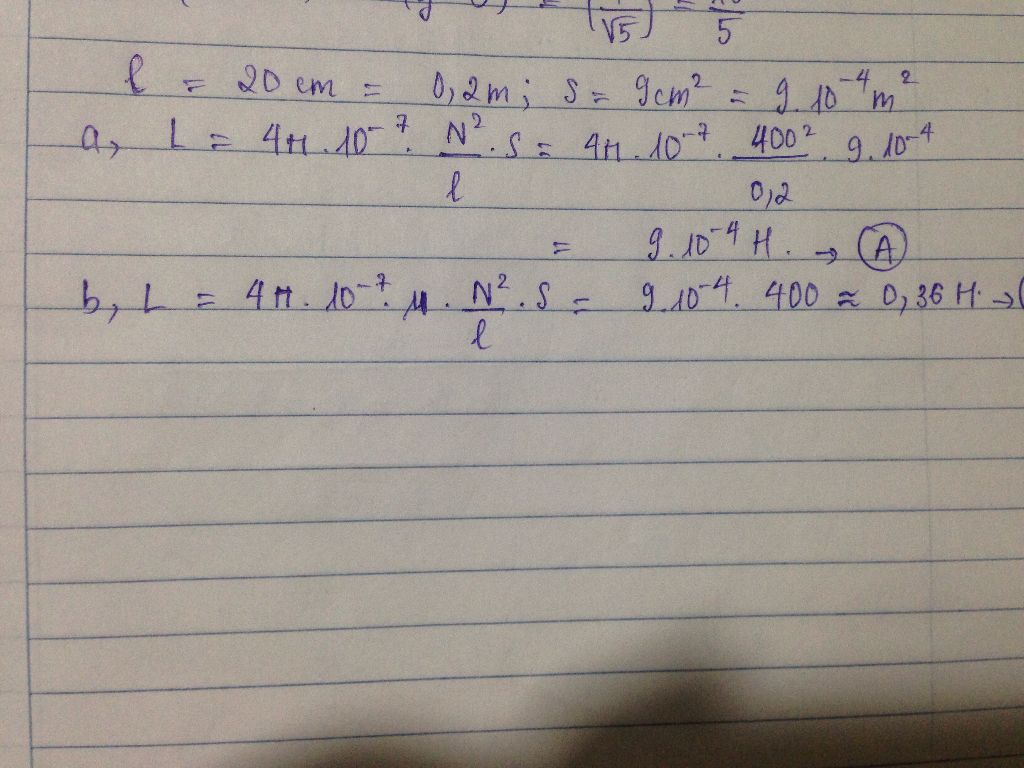 (1/√5) = /5
l = 20 cm = 0,2m; S = 9cm² = 9.10⁻⁴m²
a, L = 4π.10⁻⁷. N²/l . S = 4π.10⁻⁷. 400²/0,2 . 9.10⁻⁴
= 9.10⁻⁴ H. → A
b, L = 4π.10⁻⁷. μ. N²/l . S = 9.10⁻⁴. 400 ≈ 0,36 H. →